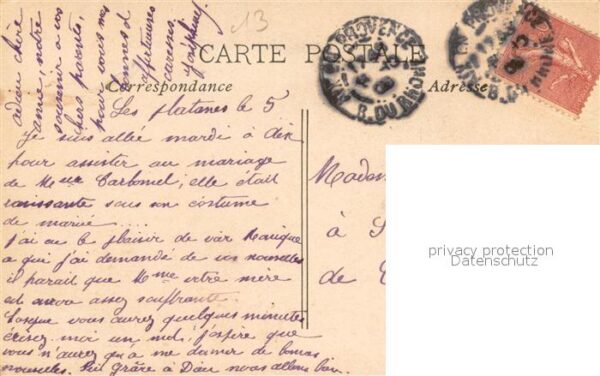 13
CARTE POSTALE
Correspondance
Adresse
Les platanes le 5
Je suis allée mardi à Aix
pour assister au mariage
de Melle Carbonel; elle était
ravissante sous son costume
de mariée....
J'ai eu le plaisir de voir
à qui j'ai demandé de vos nouvelles
il parait que Mme votre mère
est encore assez souffrante.
Lorsque vous aurez quelques minutes
écrivez-moi un mot; j'espère que
vous n'aurez qu'à me donner de bonnes
nouvelles. Ici grâce à Dieu nous allons bien.
adieu chère
amie, notre
souvenir à vos
chers parents,
pour vous mes
bonnes et
affectueuses
caresses
Joséphine
à S
de
privacy protection
Datenschutz
B. DU RHONE